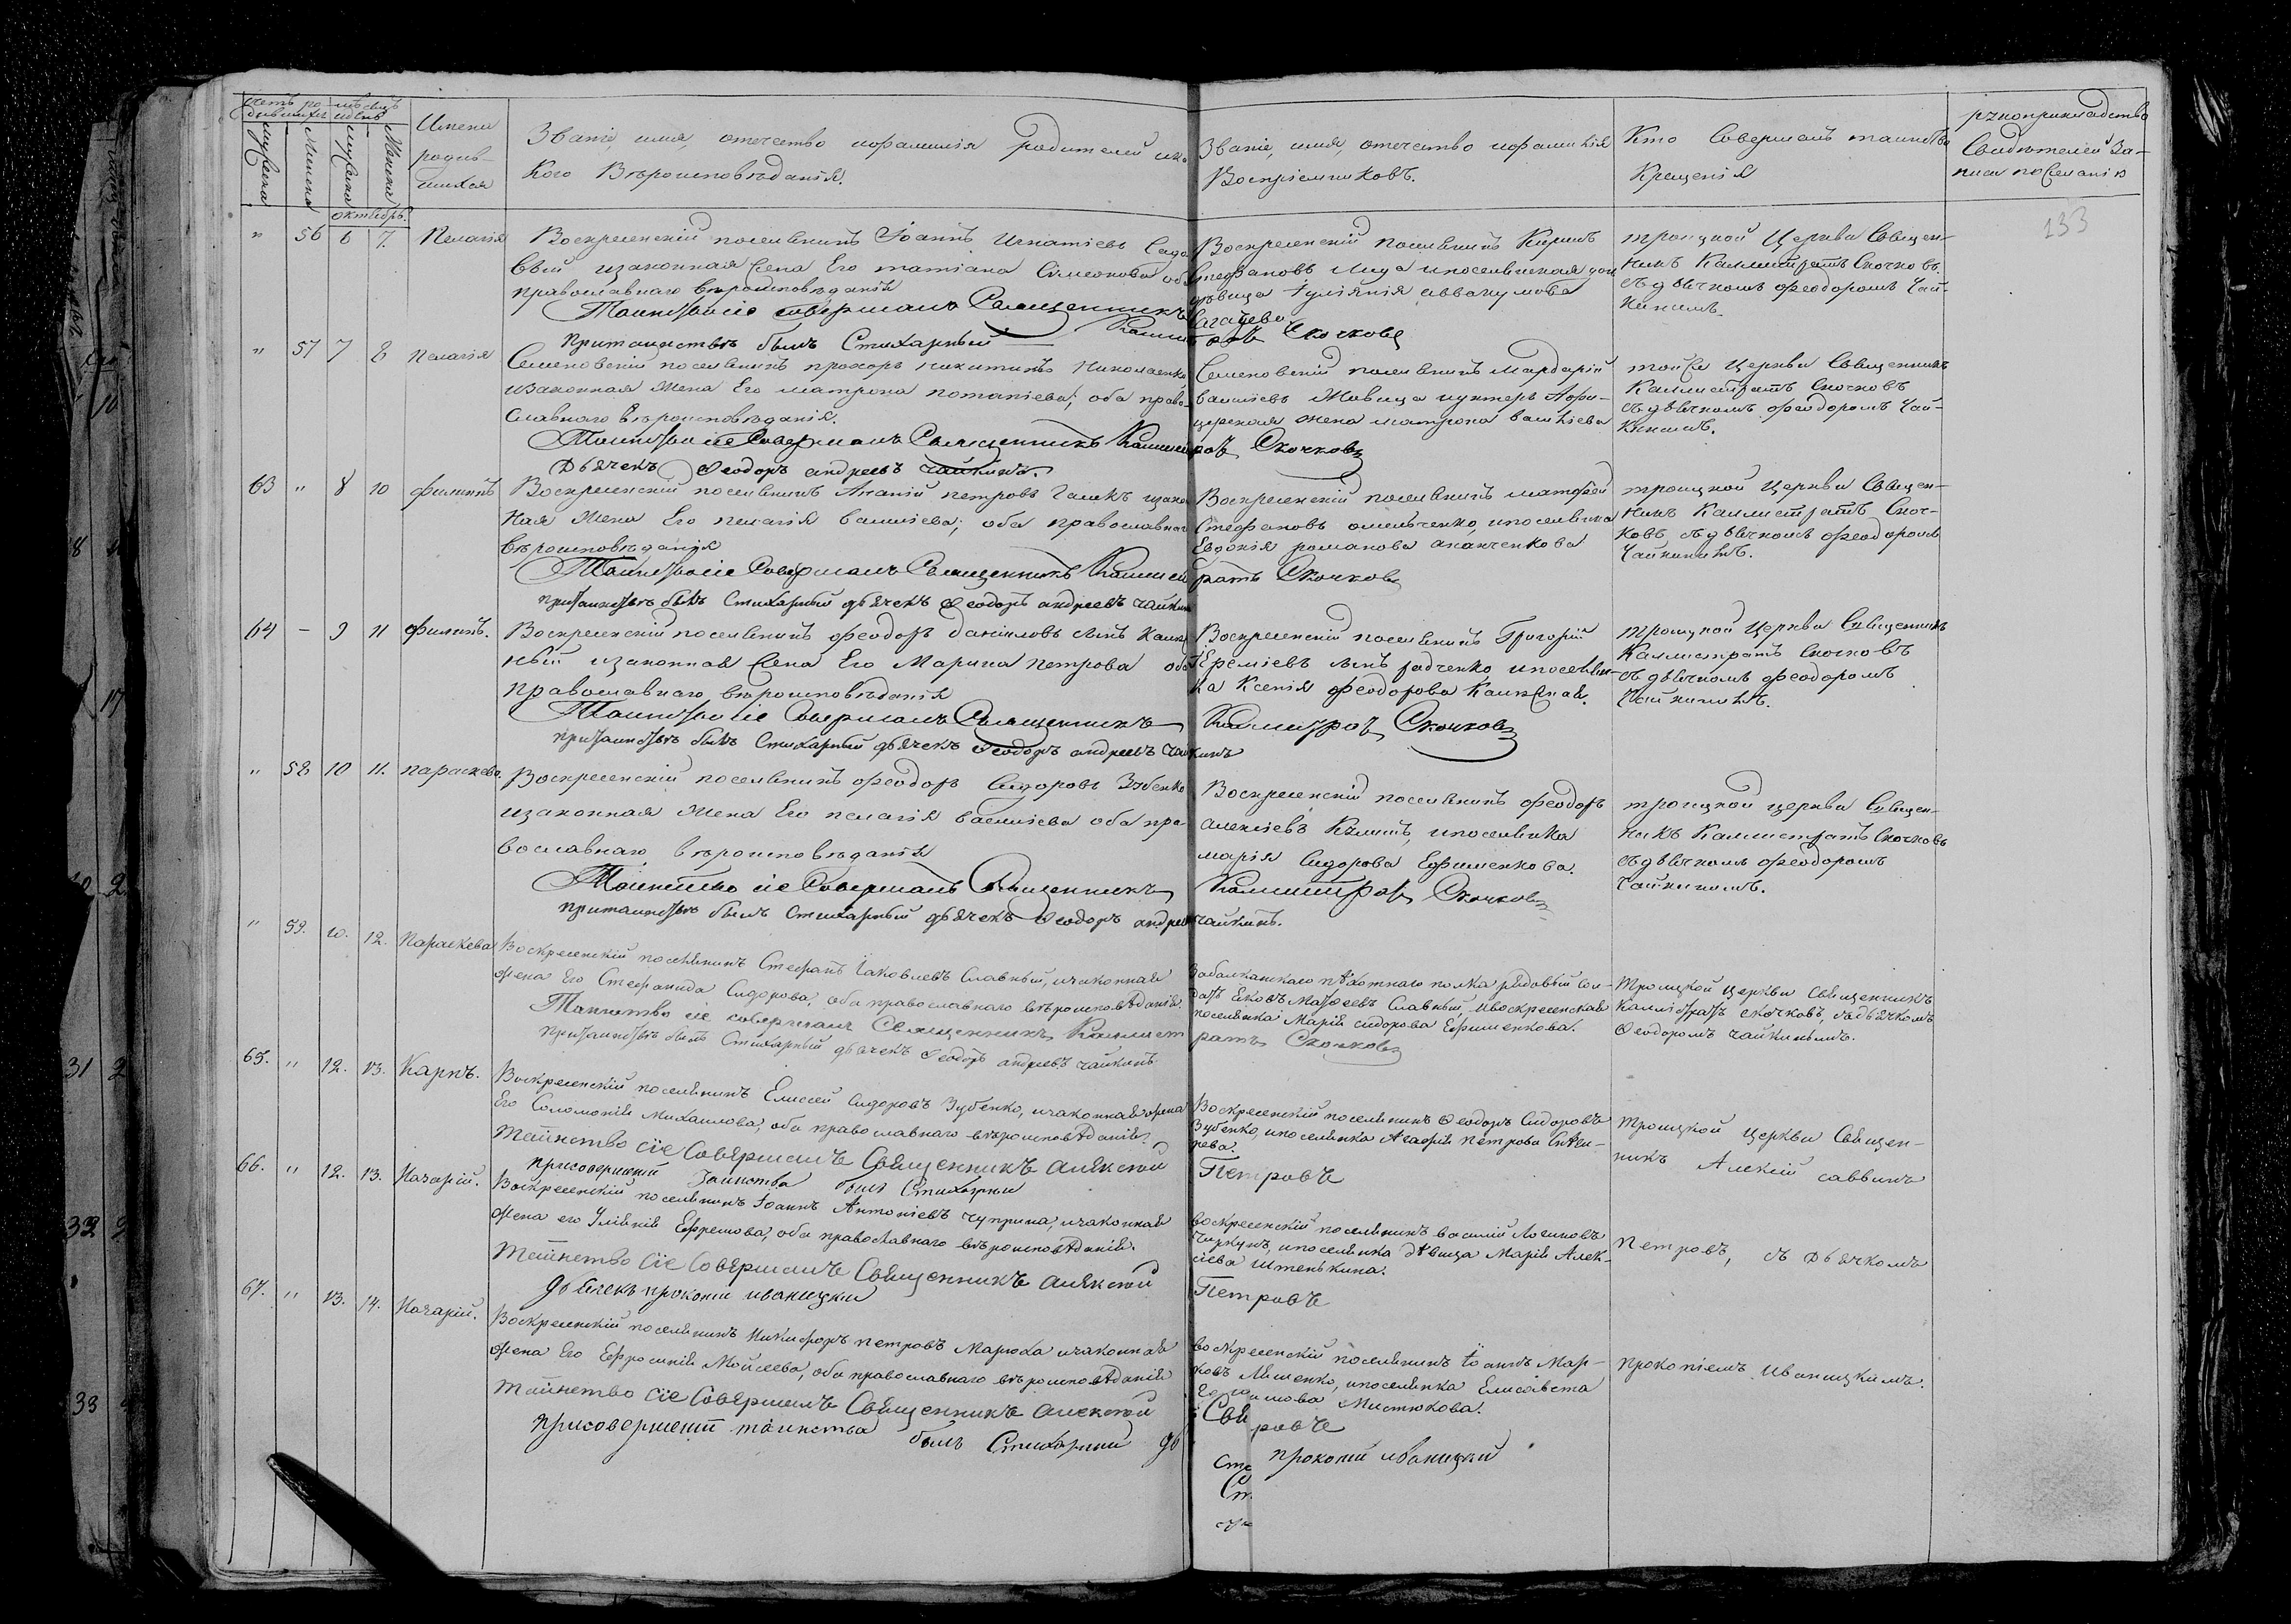 Счетъ ро- мѣсяцъ
дившихся и день
Мужеска
Женска
Мужеска
Женска
Имена
родив-
шихся
Званіе, имя, отчество и фамилія родителей и ка-
кого Вѣроисповѣданія.
Званіе, имя, отчество и фамилія
Воспріемниковъ.
Кто Совершалъ таинство
Крещенія
рукоприкладство
Свидѣтелей За-
писи по Желанію
октябрь.
133
" 56 6 7. Пелагія
Воскресенскій поселянинъ Іоаннъ Игнатіевъ
вый и законная жена Его татіана Симеонова оба
православнаго вѣроисповѣданія
Таинство сіе совершалъ Священникъ
При таинствѣ былъ Стихарный
Воскресенскій поселянинъ Кирилъ
Стефановъ и поселянская дочь
дѣвица Іуліянія аввакумова
Скочковъ
троицкой Церкви Священ-
никъ Каллистратъ Скочковъ
съ дьячкомъ феодоромъ Чай-
кинымъ.
" 57 7 8 Пелагія
Семеновскій поселянинъ прохоръ никитинъ Николаенко
и законная жена Его матрона потапіева; оба право-
славнаго вѣроисповѣданія.
Таинство сіе Совершалъ Священникъ Каллист
Дьячекъ Феодоръ андреевъ чайкинъ.
Семеновскій поселянинъ Мардарій
василіевъ и унтеръ Афи-
церская жена матрона василіева
ратъ Скочковъ
той же Церкви Священникъ
Каллистратъ Скочковъ
съ дьячкомъ феодоромъ Чай-
кинымъ.
63 " 8 10 филипъ
Воскресенскій поселянинъ Ананій петровъ и закон
ная жена Его пелагія василіева; оба православнаго
вѣроисповѣданія
Таинство сіе Совершалъ Священникъ Каллист
при таинствѣ былъ Стихарный дьячекъ Феодоръ андреевъ чайкинъ
Воскресенскій поселянинъ матфей
Стефановъ омельченко, и поселянка
Евдокія романова
ратъ Скочковъ
троицкой Церкви Священ-
никъ Каллистратъ Скоч-
ковъ съ дьячкомъ феодоромъ
Чайкинымъ.
64 - 9 11 филипъ.
Воскресенскій поселянинъ феодоръ даніиловъ сынъ
ный и законная жена Его Марина петрова оба
православнаго вѣроисповѣданія
Таинство сіе Совершалъ Священникъ
при таинствѣ былъ Стихарный дьячекъ Феодоръ андреевъ чай
Воскресенскій поселянинъ Григорій
Еремѣевъ сынъ радченко, и поселян-
ка Ксенія феодорова
Каллистратъ Скочковъ
кинъ
троицкой Церкви Священникъ
Каллистратъ Скочковъ
съ дьячкомъ феодоромъ
Чайкинымъ.
" 58 10 11. параскева.
Воскресенскій поселянинъ феодоръ Сидоровъ Зубенко
и законная жена Его пелагія василіева оба пра-
вославнаго вѣроисповѣданія
Таинство сіе Совершалъ Священникъ
при таинствѣ былъ Стихарный дьячекъ Феодоръ андреевъ
Воскресенскій поселянинъ феодоръ
алексіевъ и поселянка
марія Сидорова Ефименкова.
Каллистратъ Скочковъ
чайкинъ.
троицкой церкви Священ-
никъ Каллистратъ Скочковъ
съ дьячкомъ феодоромъ
Чайкинымъ.
" 59. 10. 12. Параскева
Воскресенскій поселянинъ Стефанъ Іаковлевъ Славный, и законная
жена Его Стефанида Сидорова, оба православнаго вѣроисповѣданія.
Таинство сіе совершалъ Священникъ Каллист
при таинствѣ былъ Стихарный дьячекъ Феодоръ андреевъ чайкинъ.
Забалканскаго пѣхотнаго полка рядовый сол-
датъ Яковъ Матфеевъ Славный, и воскресенская
поселянка Марія сидорова Ефименкова.
ратъ Скочковъ
Троицкой церкви священникъ
Каллистратъ скочковъ, съ дьячкомъ
Феодоромъ чайкинымъ.
65. " 12. 13. Карпъ.
Воскресенскій поселянинъ Елисей Сидоровъ Зубенко, и законная жена
Его Соломонія Михаилова, оба православнаго вѣроисповѣданія.
таинство сіе Совершалъ Священникъ алексій
при совершеніи таинства былъ Стихарный
Воскресенскій поселянинъ Феодоръ Сидоровъ
Зубенко, и поселянка Агафія петрова
Петровъ
Троицкой церкви Священ-
никъ Алексій саввинъ
66. " 12. 13. Назарій.
Воскресенскій поселянинъ Іоаннъ Антоніевъ Чуприна, и законная
жена его Уліянія Ефремова, оба православнаго вѣроисповѣданія.
таинство сіе Совершалъ Священникъ алексій
дьячекъ прокопій иваницкій
воскресенскій поселянинъ василій Логиновъ
и поселянка дѣвица Марія Алек-
сіева Штенькина.
Петровъ
Петровъ, съ дьячкомъ
67. " 13. 14. Назарій.
Воскресенскій поселянинъ Никифоръ петровъ Марюха и законная
жена Его Ефросинія Мойсеева, оба православнаго вѣроисповѣданія
таинство сіе Совершалъ Священникъ алексій
при совершеніи таинства былъ Стихарный дь
воскресенскій поселянинъ Іоаннъ Мар-
ковъ Мищенко, и поселянка Елисавета
Мистюкова.
ровъ
прокопій иваницкій
прокопіемъ Иваницкимъ.